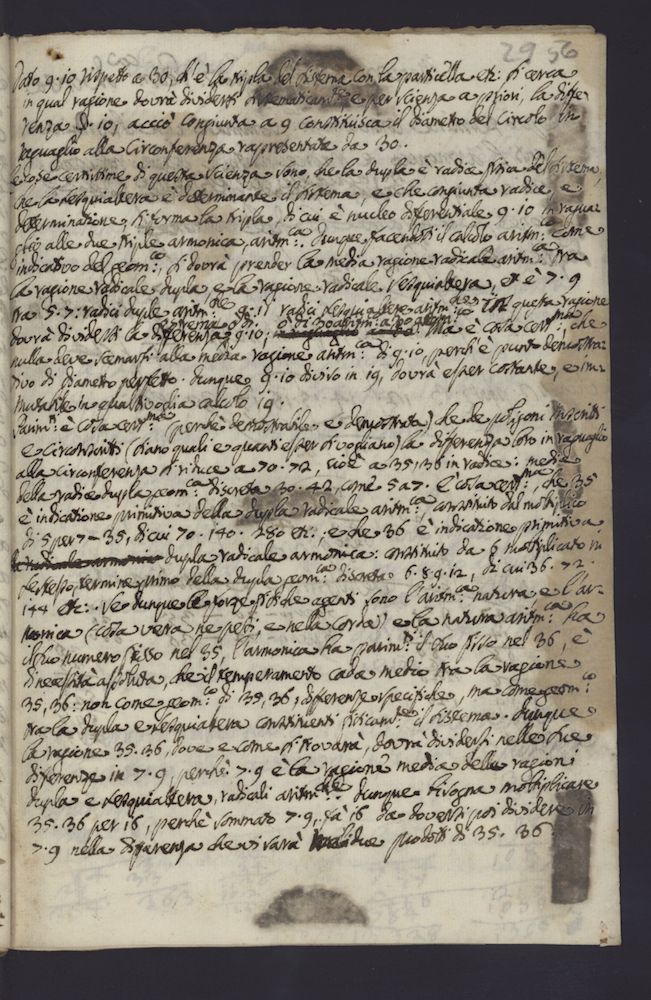 29 56
Dato 9·10 rispetto a 30, ch'è la tripla del sistema con la particella etc: si cerca
in qual ragione dovrà dividersi sistematicam:te e per scienza a priori, la diffe
renza 9·10, acciò congiunta a 9 constituisca il diametro del Circolo in
ragguaglio alla Circonferenza rapresentata da 30.
Le cose certissime di questa scienza sono, che la dupla è radice fisica del sistema,
che la sesquialtera è determinante il sistema, e che congiunta radice, e
determinatione, si forma la tripla, di cui è nucleo differentiale 9·10 in raguа:
glio alle due triple armonica, aritm:ca Dunque facendosi il calcolo aritm:co come
indicativo del geom:co, si dovrà prender la media ragione radicale aritm:ca tra
la ragione radicale dupla, e la ragione radicale sesquialtera, et è 7·9
tra 5·7: radici duple aritm:che 9·11 radici sesquialtere aritm:che In questa ragione
dovrà dividersi la differenza 9·10, Ma è cosa cert:ma, che
nulla deve scemarsi alla media ragione aritm:ca di 9·10, perch'è punto demostra:
tivo di diametro perfetto. Dunque 9·10 diviso in 19, dovrà esser costante, e im:
mutabile in qualsivoglia calcolo 19.
Parim:ti è cosa cert:ma (perchè demostrabile, e demostrata) che de poligoni inscritti
e circoscritti (siano quali e quanti esser si vogliano) la differenza loro in raguaglio
alla circonferenza si riduce a 70·72, cioè a 35, 36 in radice: medie
della radice dupla geom:ca discreta 30·42, come 5 a 7. È cosa cert:ma, che 35
è indicatione primitiva della dupla radicale aritm:ca, constituito dal moltiplico
di 5 per 7 = 35, di cui 70·140·280 etc: e che 36 è indicatione primitiva
dupla radicale armonica: constituito da 6 moltiplicato in
se stesso, termine primo della dupla geom:ca discreta 6·8·9·12, di cui 36·72·
144 etc:. Se dunque le forze fisiche agenti sono l'aritm:ca natura, e l'ar:
monica (cosa vera ne pesi, e nella corda) e la natura aritm:ca ha
il suo numero fisso nel 35, l'armonica ha parim:ti il suo fisso nel 36, è
di necessità assoluta, che il temperamento cada medio tra la ragione
35, 36: non come geom:co di 35, 36, differenze specifiche, ma come geom:co
tra la dupla e sesquialtera constituenti fisicam:te il sistema. Dunque
la ragione 35·36, dove e come si trovarà, dovrà dividersi nelle sue
differenze in 7·9, perchè 7·9 è la ragione media delle ragioni
dupla e sesquialtera, radicali aritm:che Dunque bisogna moltiplicare
35·36 per 16, perchè sommato 7·9, fà 16 da doversi poi dividere in
7·9 nella differenza che vi sarà due prodotti di 35·36